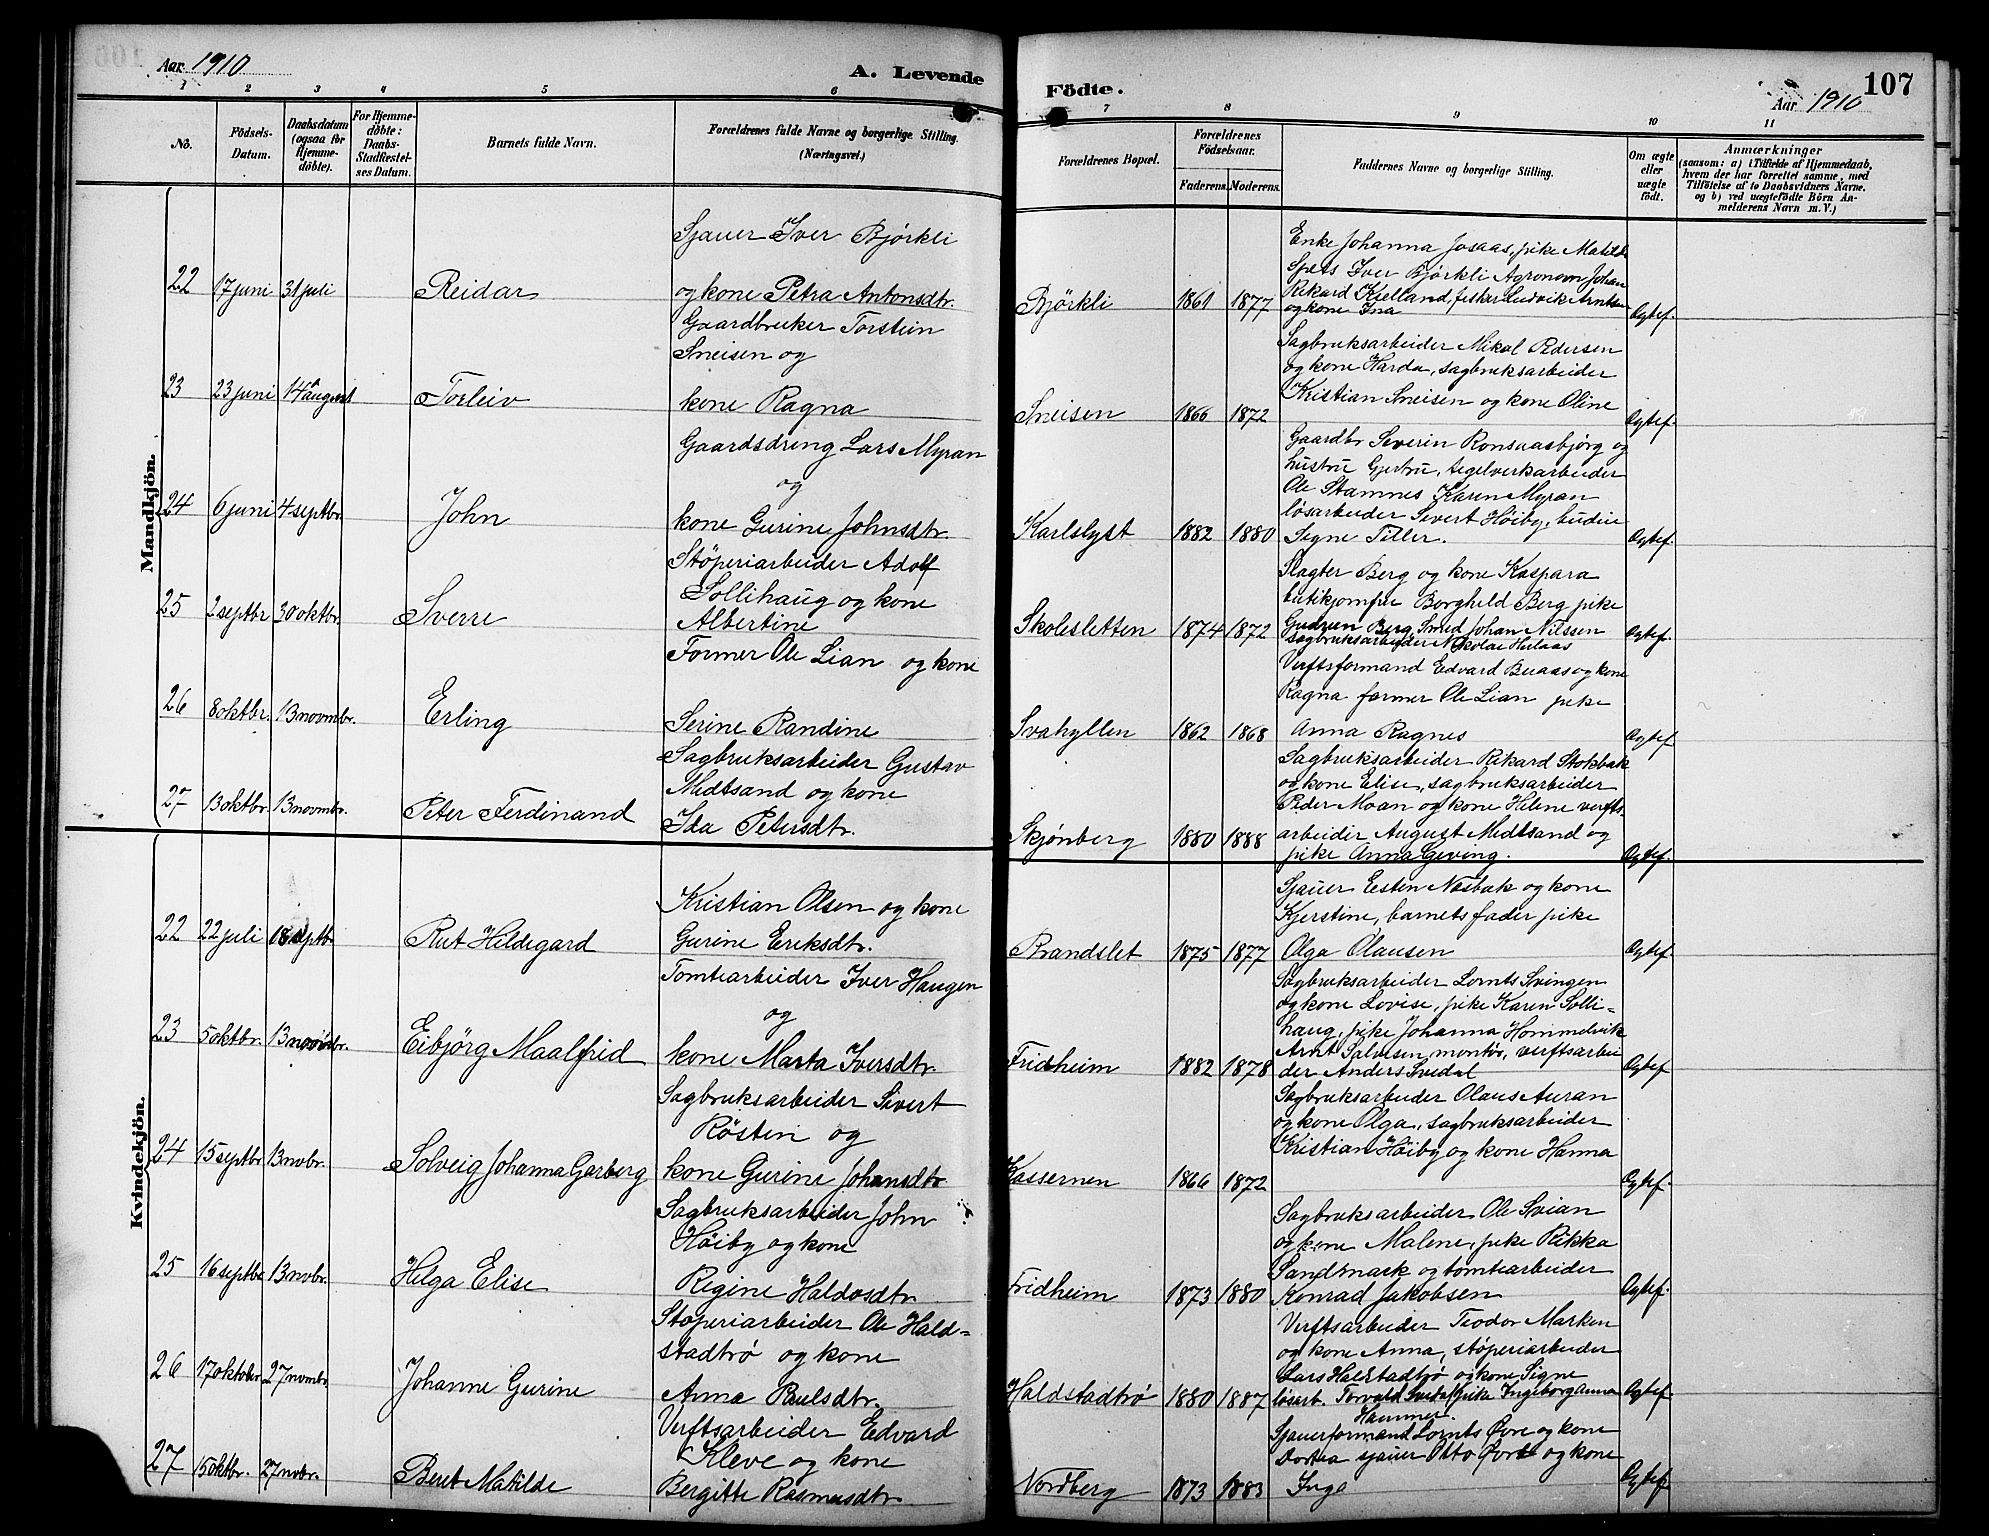 Aar 1910
A. Levende
Födte.
107
Aar 1910
1 2 3 4 5 6 7 8 9 10 11
No.
Födsels-
Datum.
Daabsdatum
(ogsaa for
Hjemme-
döbte).
For Hjemme-
döbte:
Daabs-
Stadfæstel-
ses Datum.
Barnets fulde Navn.
Forældrenes fulde Navne og borgerlige Stilling.
(Næringsvei.)
Forældrenes Bopæl.
Forældrenes
Födselsaar.
Faderens. Moderens.
Faddernes Navne og borgerlige Stilling.
Om ægte
eller
uægte
födt.
Anmærkninger
(saasom: a) i Tilfælde af Hjemmedaab,
hvem der har forrettet samme, med
Tilföielse af to Daabsvidners Navne.
og b) ved uægtefödte Börn An-
melderens Navn m. V.)
Mandkjön.
22 17 juni 31 juli Reidar
Sjauer Iver Björkli
og kone Petra Antonsdtr.
Björkli 1861 1877
Enke Johanna Josaas, pike Matilde
Spets Iver Björkli Agronom Johan
Rikard Kjelland, fisker Ludvik Arntsen
og kone Ina
Egtef.
23 23 juni 14 august Torleiv
Gaardbruker Torstein
Sneisen og
kone Ragna
Sneisen 1866 1872
Sagbruksarbeider Mikal Pedersen
og kone Harda, sagbruksarbeider
Kristian Sneisen og kone Oline
Egtef.
24 6 juni 4 septbr. John
Gaardsdreng Lars Myran
og
kone Gurine Johnsdtr.
Karlslyst 1882 1880
Gaardbr Severin Ronsaasbjörg og
hustru Gjertru, tegelverksarbeider
Ole Stamnes Karen Myran
lösarbeider Sivert Höiby, budeie
Signe Tiller.
Egtef.
25 2 septbr 30 oktbr. Sverre
Stöperiarbeider Adolf
Sollihaug og kone
Albertine
Skolesletten 1874 1872
Slagter Berg og kone Kaspara
butikjomfru Borghild Berg pike
Gudrun Berg Smed Johan Nilssen
sagbruksarbeider Nikolai
Egtef.
26 8 oktbr. 13 novmbr. Erling
Former Ole Lian og kone
Serine Randine
Svahyllen 1862 1868
Verftsformand Edvard Buaas og kone
Ragna former Ole Lian pike
Anna Ragnes
Egtef
27 13 oktbr. 13 novmbr. Peter Ferdinand
Sagbruksarbeider Gustav
Midtsand og kone
Ida Petersdtr.
Skjönberg 1880 1888
Sagbruksarbeider Rikard Stokbak
og kone Elise, sagbruksarbeider
Peder Moan og kone Helene verfts-
arbeider August Midtsand og
pike Anna Geving.
Egtef.
Kvindekjön.
22 22 juli 18 septbr Rut Hildegard
Kristian Olsen og kone
Gurine Eriksdtr.
Brandslet 1875 1877
Sjauer Esten Næsbak og kone
Kjerstine, barnets fader pike
Olga Olausen
Egtef.
23 5 oktbr. 13 novmbr. Eibjörg Maalfrid
Tomtearbeider Iver Haugen
og
kone Marta Iversdtr.
Fridheim 1882 1878
Sagbruksarbeider Lornts Svingen
og kone Lovise, pike Karen Solli-
haug, pike Johanna Hommelvik
Arnt Salvesen, montör, verftsarbei
der Anders Svedal
Egtef
24 15 septbr 13 nvbr. Solveig Johanna Garberg
Sagbruksarbeider Sivert
Rösten og
kone Gurine Johansdtr
Kassernen 1866 1872
Sagbruksarbeider Olaus Auran
og kone Olga, sagbruksarbeider
Kristian Höiby og kone Hanna
Egtef.
25 16 septbr 13 nvbr. Helga Elise
Sagbruksarbeider John
Höiby og kone
Regine Haldosdtr.
Fridheim 1873 1880
Sagbruksarbeider Ole Svian
og kone Malene, pike Rikka
Sandmark og tomtearbeider
Konrad Jakobsen
Egtef.
26 17 oktober 27 novmbr. Johanne Gurine
Stöperiarbeider Ole Hald=
stadtrö og kone
Anna Paulsdtr.
Haldstadtrö 1880 1887
Verftsarbeider Teodor Marken
og kone Anna, stöperiarbeider
Lars Haldstadtrö og kone Signe
lösarb. Torvald Svedal pike Ingeborganna
Hammer.
Egtef.
27 15 oktbr. 27 nvbr. Beret Matilde
Verftsarbeider Edvard
Kleve og kone
Bergitte Rasmusdtr.
Nordberg 1873 1883
Sjauerformand Lornts Övre og kone
Dortea sjauer Otto Övre og kone
Inga
Egtef.